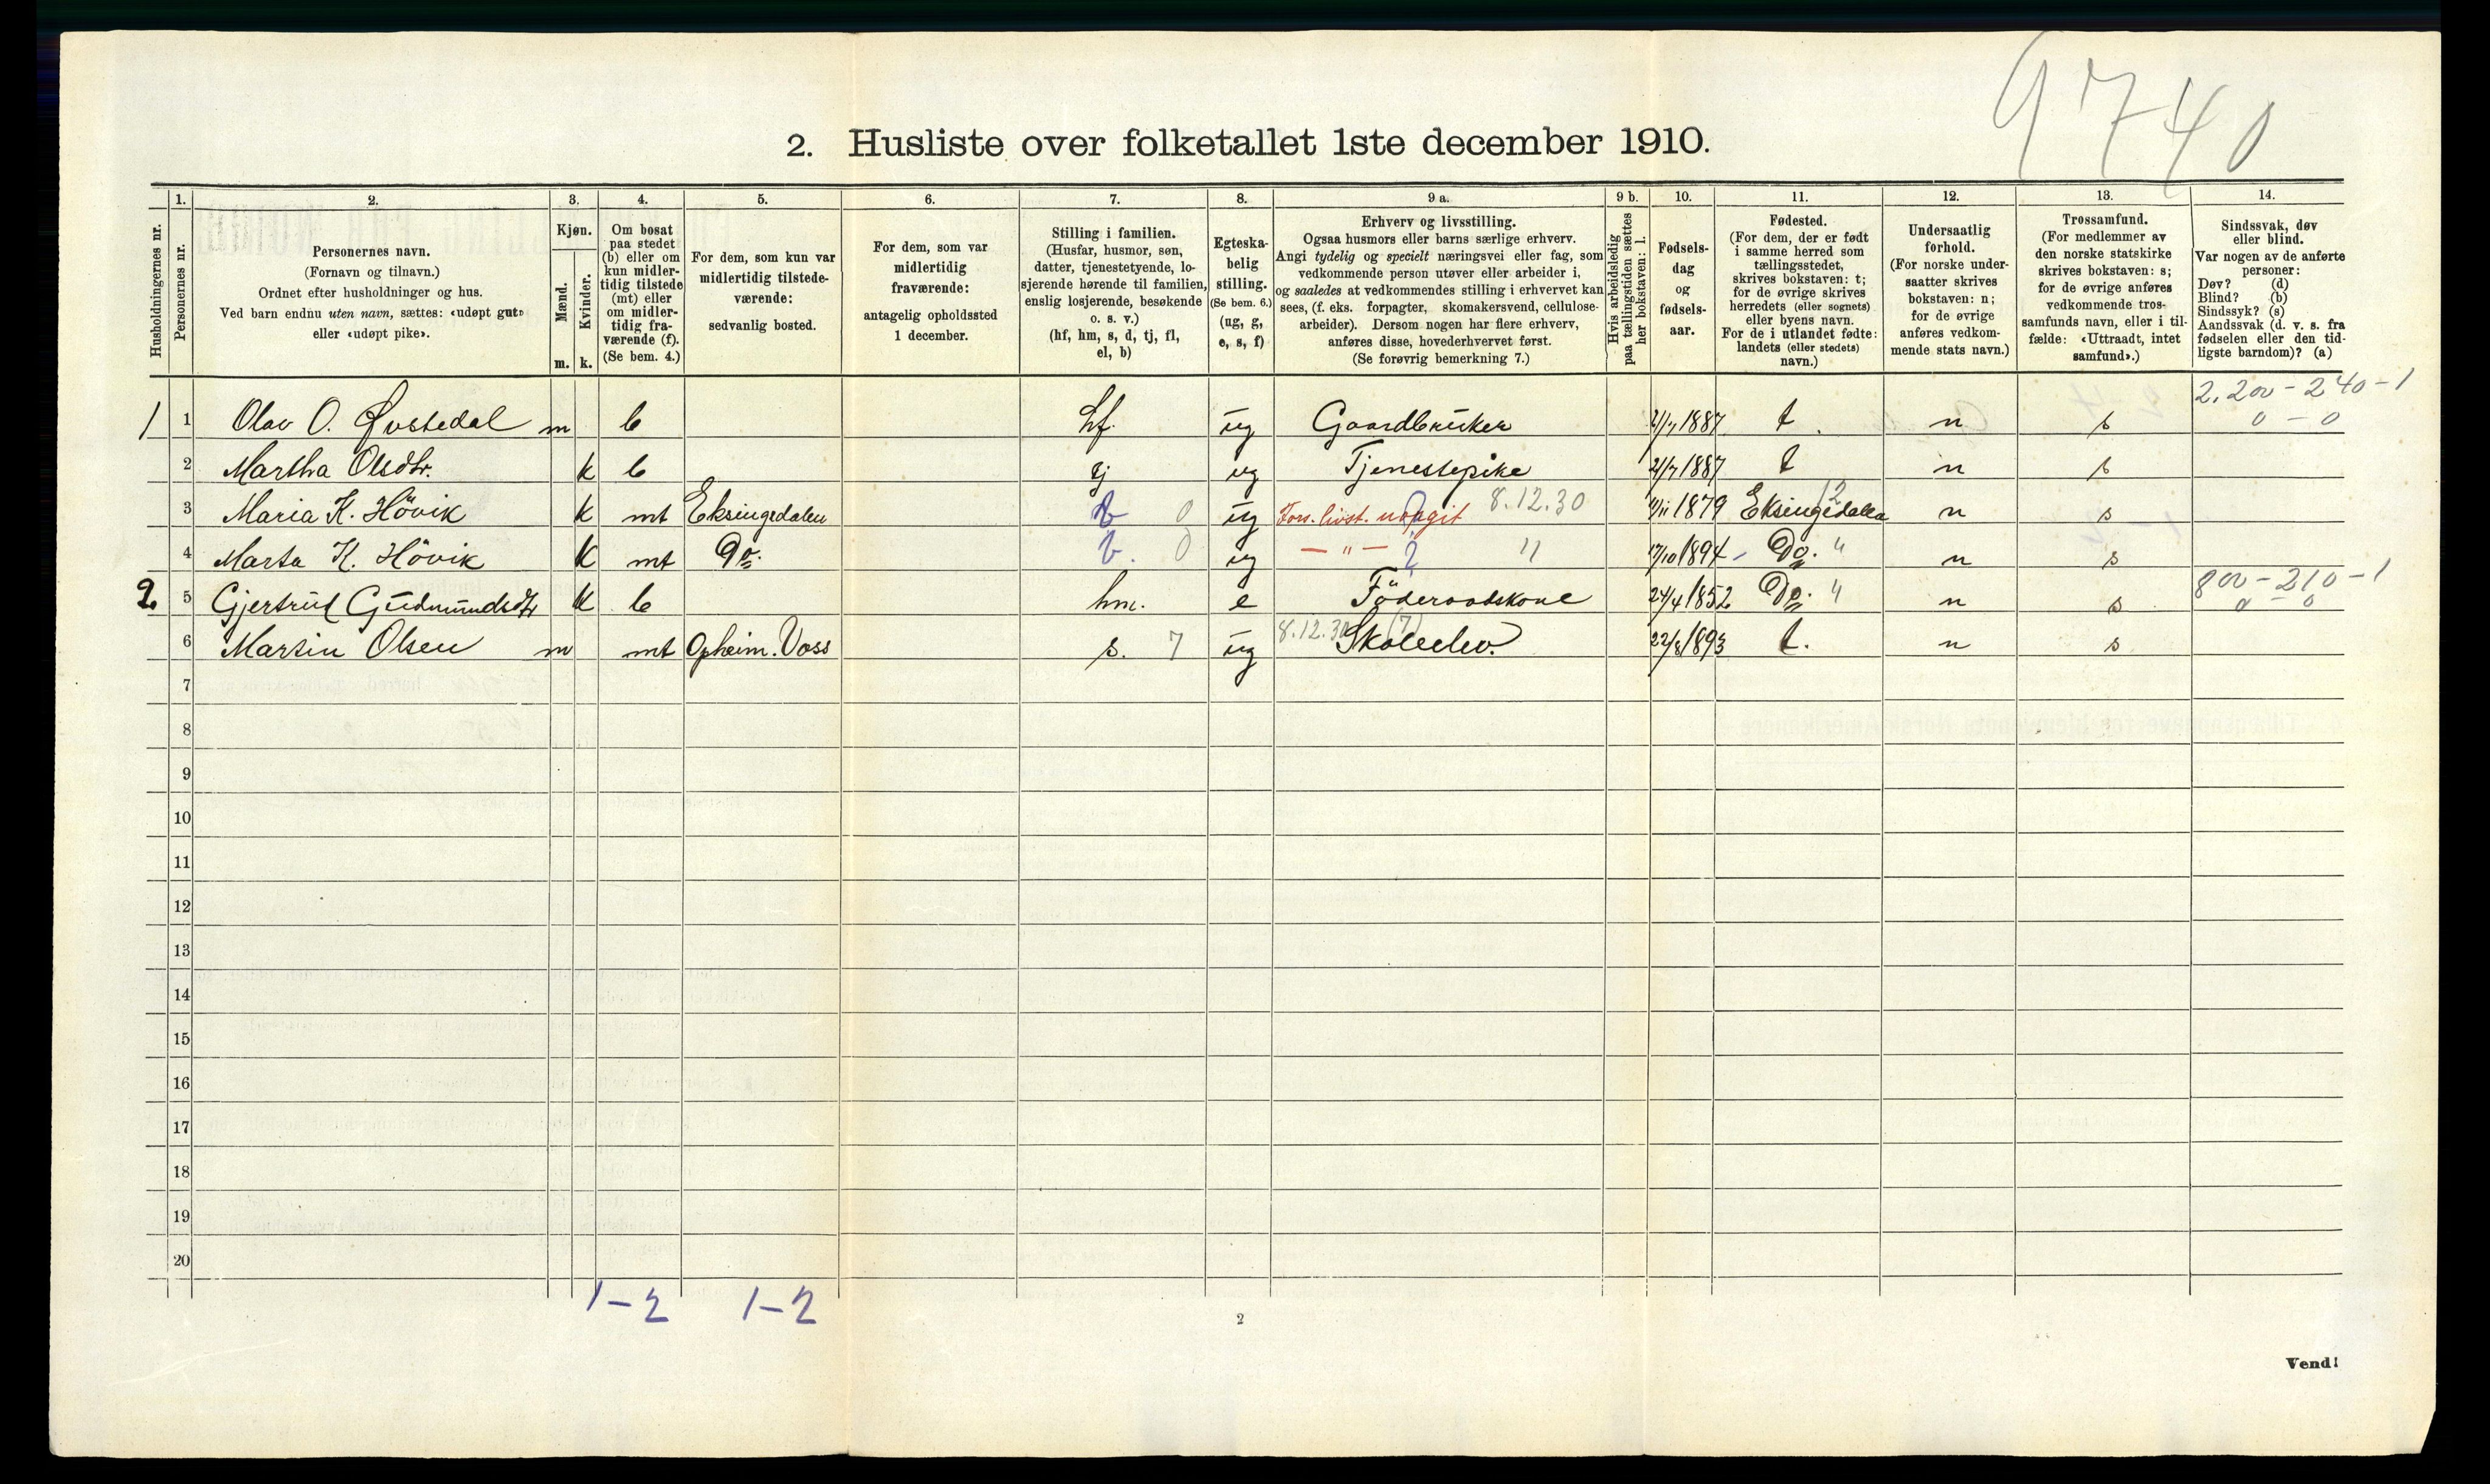 9740
2. Husliste over folketallet 1ste december 1910.
Husholdningernes nr.
1. Personernes nr.
2. Personernes navn.
(Fornavn og tilnavn.)
Ordnet efter husholdninger og hus.
Ved barn endnu uten navn, sættes: «udøpt gut»
eller «udøpt pike».
3. Kjøn.
Mænd. m.
Kvinder. k.
4. Om bosat
paa stedet
(b) eller om
kun midler-
tidig tilstede
(mt) eller
om midler-
tidig fra-
værende (f).
(Se bem. 4.)
5. For dem, som kun var
midlertidig tilstede-
værende:
sedvanlig bosted.
6. For dem, som var
midlertidig
fraværende:
antagelig opholdssted
1 december.
7. Stilling i familien.
(Husfar, husmor, søn,
datter, tjenestetyende, lo-
sjerende hørende til familien,
enslig losjerende, besøkende
o. s. v.)
(hf, hm, s, d, tj, fl,
el, b)
8. Egteska-
belig
stilling.
(Se bem. 6.)
(ug, g,
e, s, f)
9 a. Erhverv og livsstilling.
Ogsaa husmors eller barns særlige erhverv.
Angi tydelig og specielt næringsvei eller fag, som
vedkommende person utøver eller arbeider i,
og saaledes at vedkommendes stilling i erhvervet kan
sees, (f. eks. forpagter, skomakersvend, cellulose-
arbeider). Dersom nogen har flere erhverv,
anføres disse, hovederhvervet først.
(Se forøvrig bemerkning 7.)
9 b. Hvis arbeidsledig
paa tællingstiden sættes
her bokstaven: l.
10. Fødsels-
dag
og
fødsels-
aar.
11. Fødested.
(For dem, der er født
i samme herred som
tællingsstedet,
skrives bokstaven: t;
for de øvrige skrives
herredets (eller sognets)
eller byens navn.
For de i utlandet fødte:
landets (eller stedets)
navn.)
12. Undersaatlig
forhold.
(For norske under-
saatter skrives
bokstaven: n;
for de øvrige
anføres vedkom-
mende stats navn.)
13. Trossamfund.
(For medlemmer av
den norske statskirke
skrives bokstaven: s;
for de øvrige anføres
vedkommende tros-
samfunds navn, eller i til-
fælde: «Uttraadt, intet
samfund».)
14. Sindssvak, døv
eller blind.
Var nogen av de anførte
personer:
Døv? (d)
Blind? (b)
Sindssyk? (s)
Aandssvak (d. v. s. fra
fødselen eller den tid-
ligste barndom)? (a)
2.200 - 240 - 1
1 1 Olav O. Øvstedal m b hf. ug Gaardbruker 1887 t. n s 0 - 0
2 Martha Olsdtr. k b tj ug Tjenestepike 1887 t n s
3 Maria K. Hövik k mt Eksingedalen b 0 ug Fors. livst. uopgit 8.12.30 1879 Eksingedalen 12 n s
4 Marta K. Hövik k mt Do. b. 0 ug — " — ? " 17/10 1894 Do. " n s
800 - 210 - 1
2. 5 Gjertrud Gudmundsdtr k b hm. e Föderaadskone 24/4 1852 Do. " n s 0 - 0
6 Martin Olsen m mt Opheim. Voss s. 7 ug 8.12.30 (7) Skoleelev. 22/8 1893 t. n s
7
8
9
10
11
12
13
14
15
16
17
18
19
20
1-2 1-2
2
Vend!